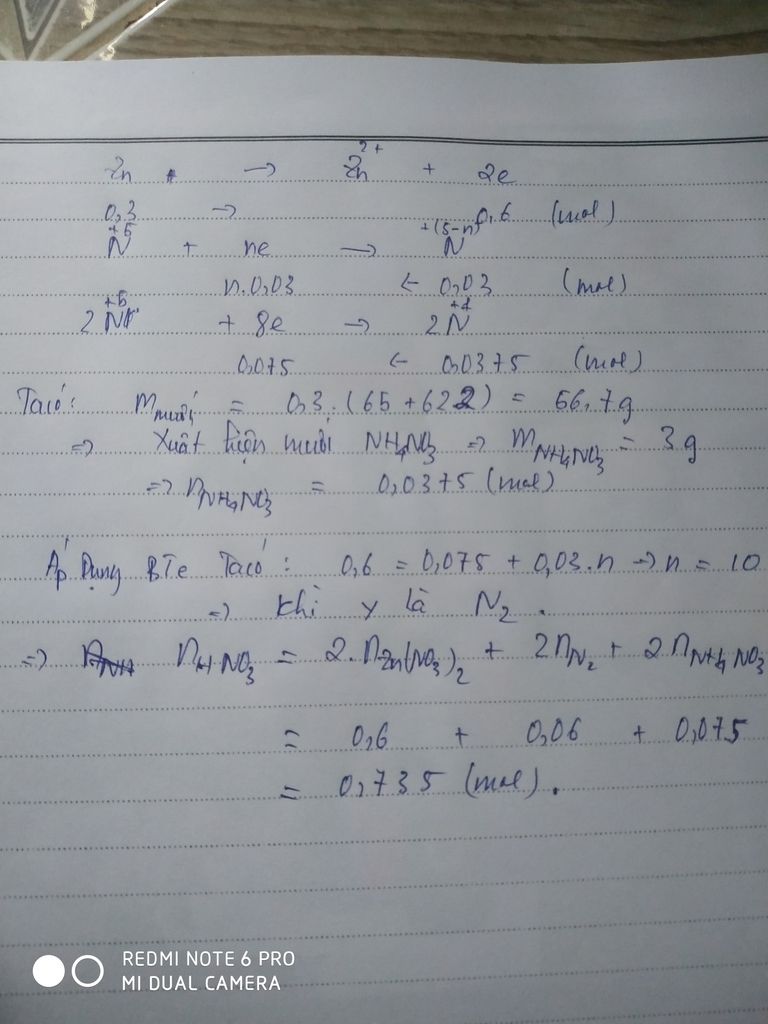 Zn → Zn²⁺ + 2e
0,3 → 0,6 (mol)
N⁺⁵ + ne → N⁺⁽⁵⁻ⁿ⁾
n.0,03 ← 0,03 (mol)
2N⁺⁵ + 8e → 2N
0,075 ← 0,0375 (mol)
Ta có: m muối = 0,3.(65+62.2) = 56,7g
=> Xuất hiện muối NH₄NO₃ => m NH₄NO₃ = 3g
=> n NH₄NO₃ = 0,0375 (mol)
Áp Dụng BTe Ta có: 0,6 = 0,075 + 0,03.n → n = 10
=> Khí Y là N₂.
=> n HNO₃ = 2.n Zn(NO₃)₂ + 2n N₂ + 2n NH₄NO₃
= 0,6 + 0,06 + 0,075
= 0,735 (mol).
REDMI NOTE 6 PRO
MI DUAL CAMERA